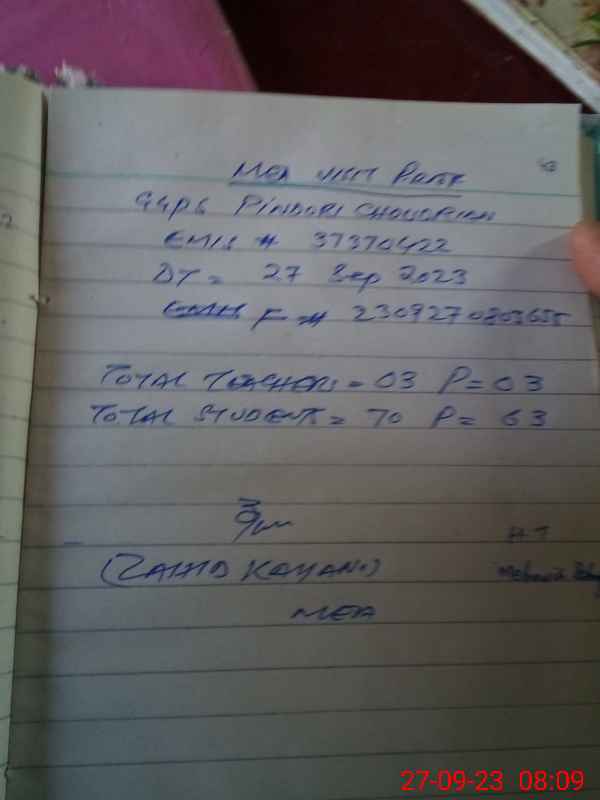 MEA VISIT PROF
GGPS PINDORI CHOUDRIAN
EMIS # 37370422
DT = 27 Sep 2023
F # 2309270803655
TOTAL TEACHERS = 03 P = 03
TOTAL STUDENTS = 70 P = 63
(ZAHID KAYANI)
MEA
H.T
27-09-23 08:09